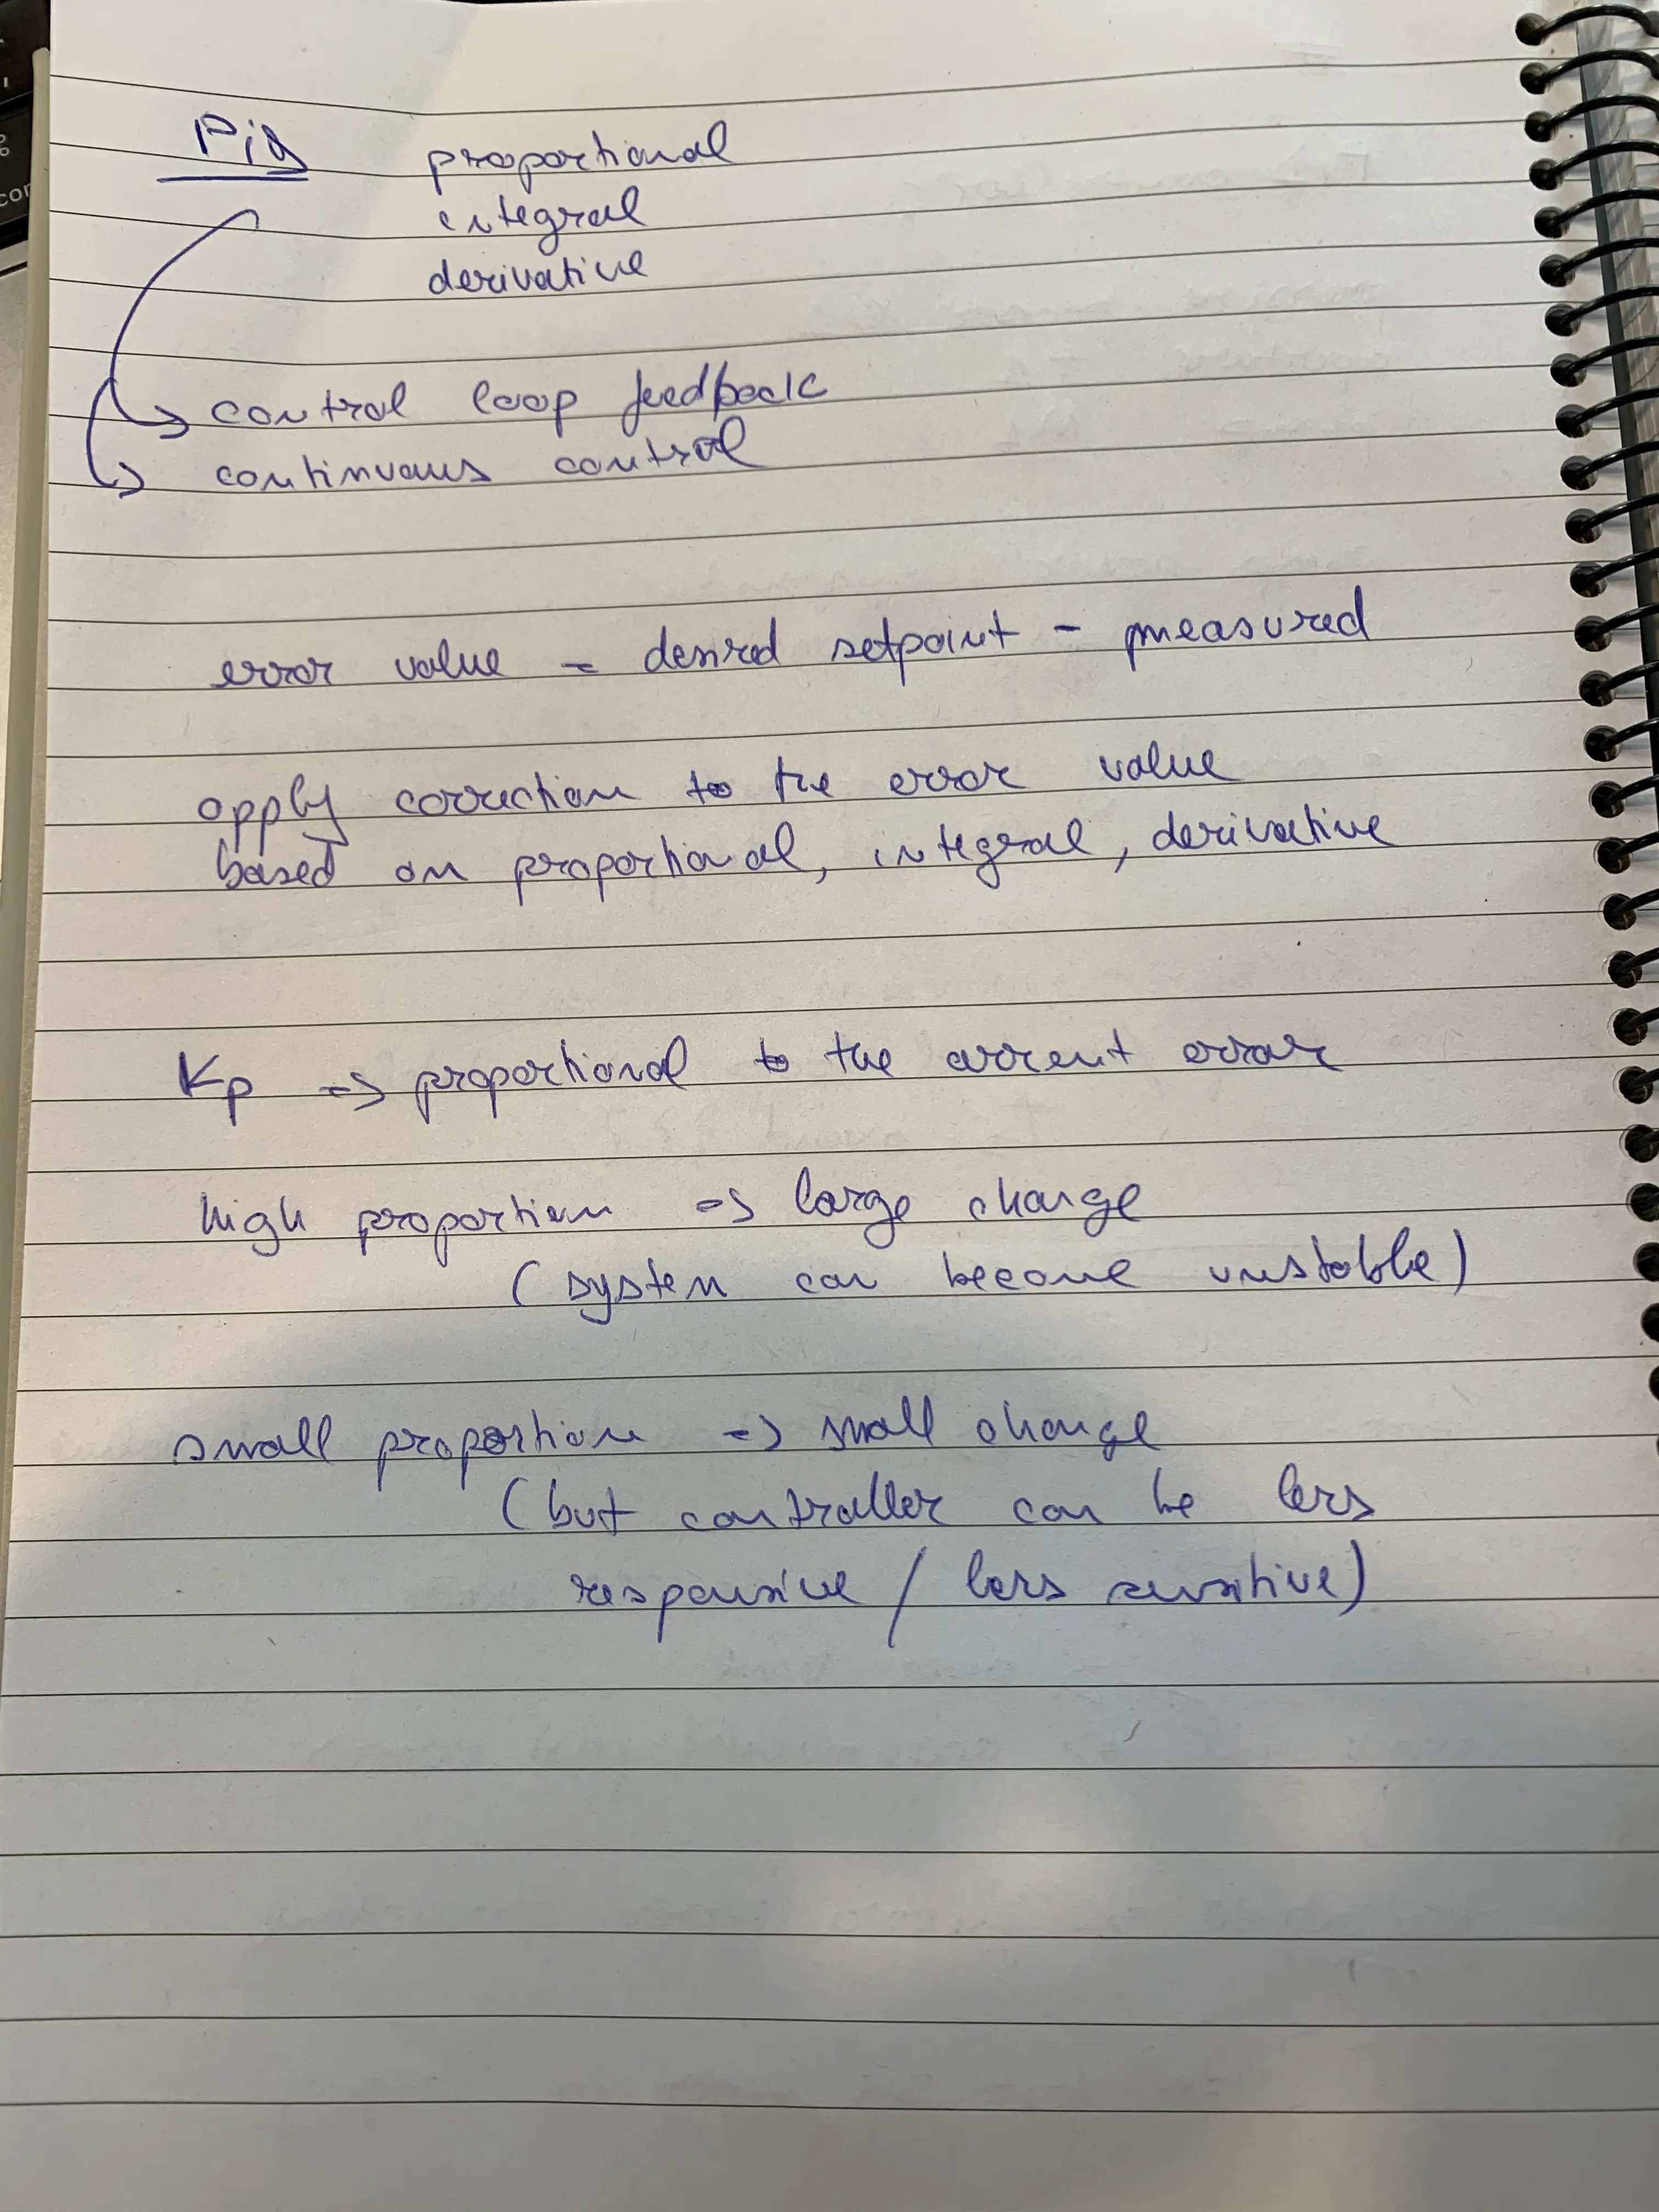 Pid proportional
integral
derivative
→ control loop feedback
→ continuous control
error value = desired setpoint - measured
apply correction to the error value
based on proportional, integral, derivative
Kp => proportional to the current error
high proportion => large change
(system can become unstable)
small proportion => small change
(but controller can be less
responsive / less sensitive)